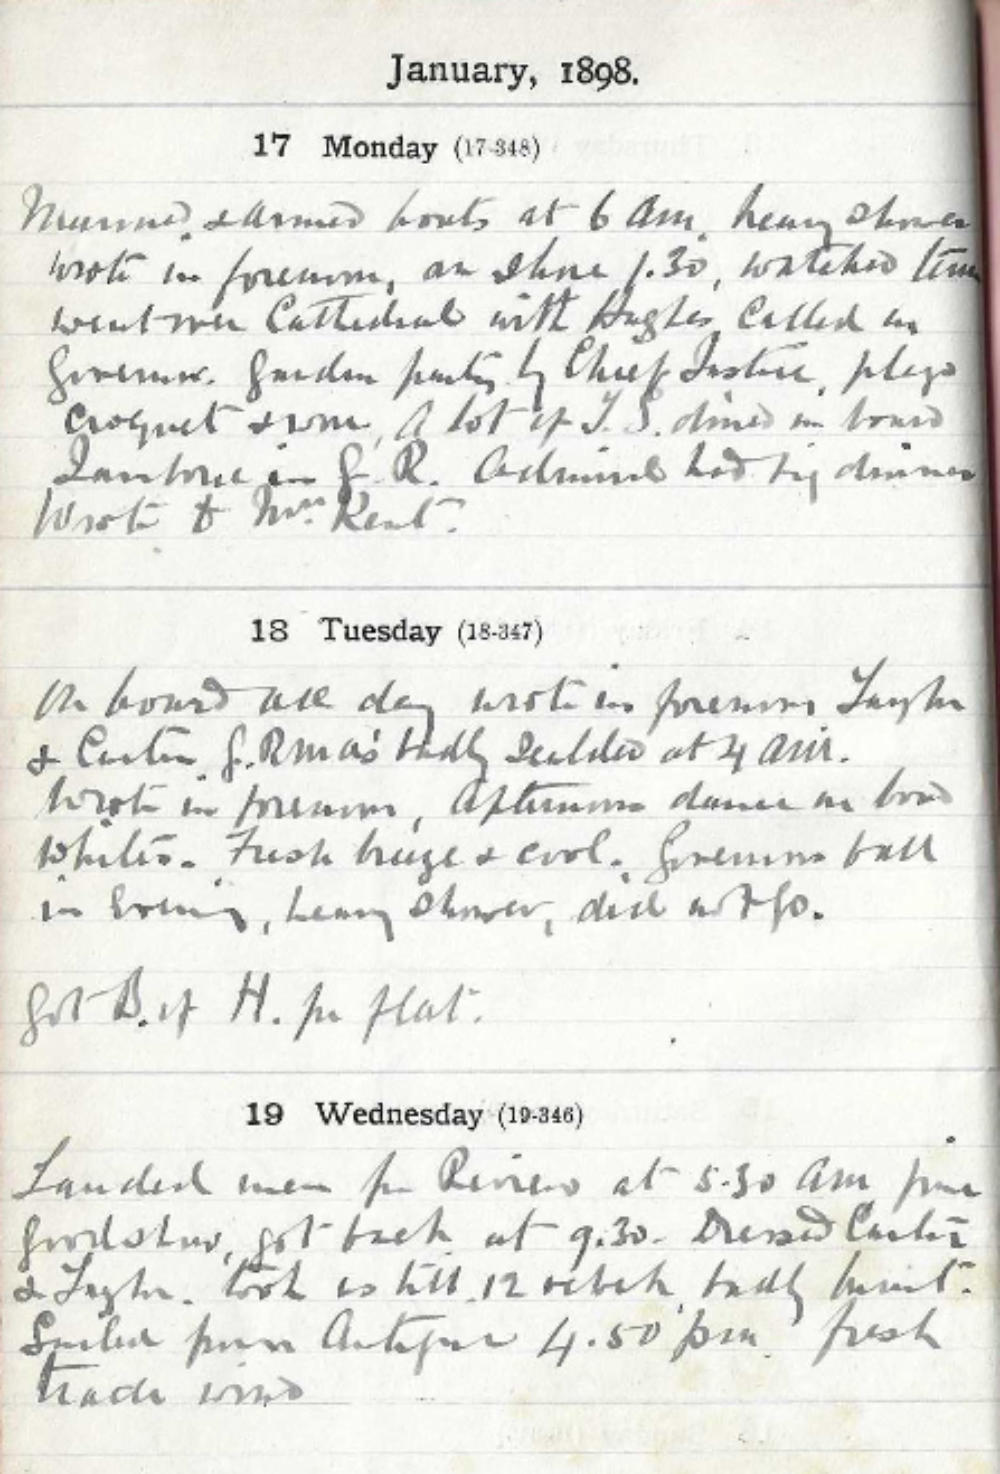 January, 1898.
17 Monday (17-348)
Manned & armed boats at 6 am. heavy shower
wrote in forenoon, on shore 1.30, watched
went over Cathedral with Hughes called on
Governor. Garden party by Chief Justice, playd
croquet & won, A lot of T. S. dined on board
Jamboree in G. R. Admiral had big dinner
Wrote to Mrs Kent.
18 Tuesday (18-347)
On board all day wrote in forenoon Taylor
& Carter E.R.mas badly scalded at 4 am.
Wrote in forenoon, Afternoon dance on board
Whites. Fresh breeze & cool. Governors ball
in Evening, heavy shower, did not go.
got B. of H. for flat.
19 Wednesday (19-346)
Landed men for Review at 5.30 am fine
good show, got back at 9.30. Dressed Carter
& Taylor. took us till 12 oclock, badly burnt.
Sailed from Antigua 4.50 pm fresh
trade wind